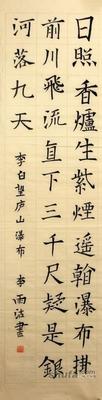 日照香爐生紫煙遥看瀑布掛
前川飛流直下三千尺疑是銀
河落九天
李白望庐山瀑布 雨書